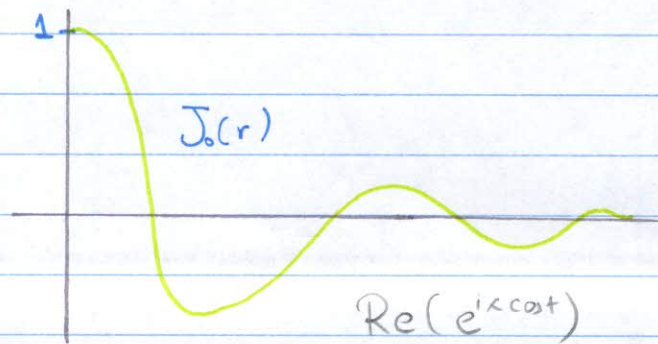 1
J₀(r)
Re(e^{ix cos t})